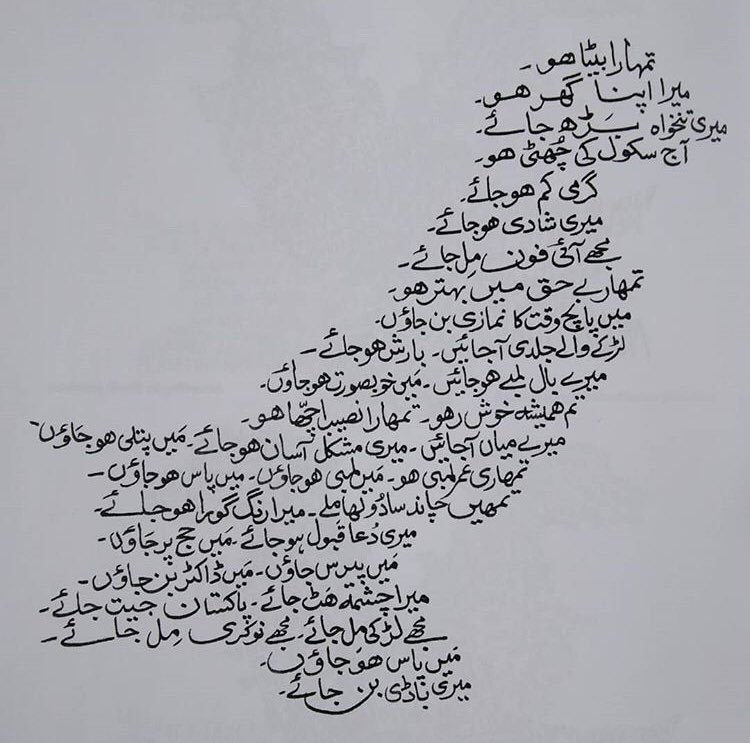 تمہارا بیٹا ھو۔
میرا اپنا گھر ھو۔
میری تنخواہ بَڑھ جائے۔
آج سکول کی چُھٹی ھو۔
گرمی کم ھوجائے۔
میری شادی ھوجائے۔
مجھے آئی فون مِل جائے۔
تمھارے حق میں بہتر ھو۔
میں پانچ وقت کا نمازی بن جاؤں۔
لڑکے والے جلدی آجائیں۔ بارش ھوجائے۔
میرے بال لمبے ھوجائیں۔ مَیں خوبصورت ھوجاؤں۔
تم ھمیشہ خوش رھو۔ تمھارا نصیب اچھّا ھو۔
میرے میاں آجائیں۔ میری مشکل آسان ھوجائے۔ مَیں پتلی ھوجاؤں۔
تمھاری عمر لمبی ھو۔ مَیں لمبی ھوجاؤں۔ میں پاس ھوجاؤں۔
تمھیں چاند سا دُولھا ملے۔ میرا رنگ گورا ھوجائے۔
میری دُعا قبول ہوجائے۔ مَیں حج پر جاؤں۔
مَیں پیرس جاؤں۔ مَیں ڈاکٹر بَن جاؤں۔
میرا چشمہ ھَٹ جائے۔ پاکستان جیت جائے۔
مجھے لڑکی مِل جائے۔ مجھے نوکری مِل جائے۔
مَیں پاس ھوجاؤں۔
میری باڈی بن جائے۔